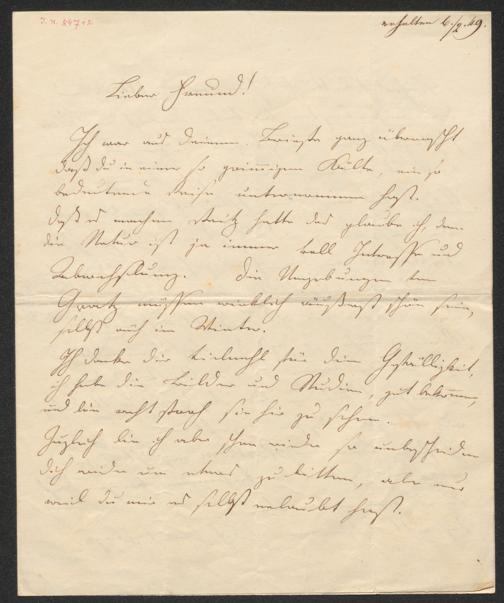 erhalten 6/2 49.
Lieber Freund!
Ich war aus deinem Briefe ganz überrascht
daß du in einer so grimmigen Kälte, ein so
bedeutende Reise unternommen hast.
Daß es manchen Reitz hatte das glaube ich, denn
die Natur ist ja immer voll Interesse und
Abwechslung. Die Umgebungen von
Graatz müssen wirklich äußerst schön sein,
selbst auch im Winter.
Ich danke dir vielmahl für deine Gefälligkeit,
ich habe die Bilder und Studien, gut bekommen,
und bin recht sie hir zu sehen.
Zugleich bin ich aber schon wieder so unbescheiden
dich wieder um etwas zu bitten, aber nur
weil du mir es selbst erlaubt hast.